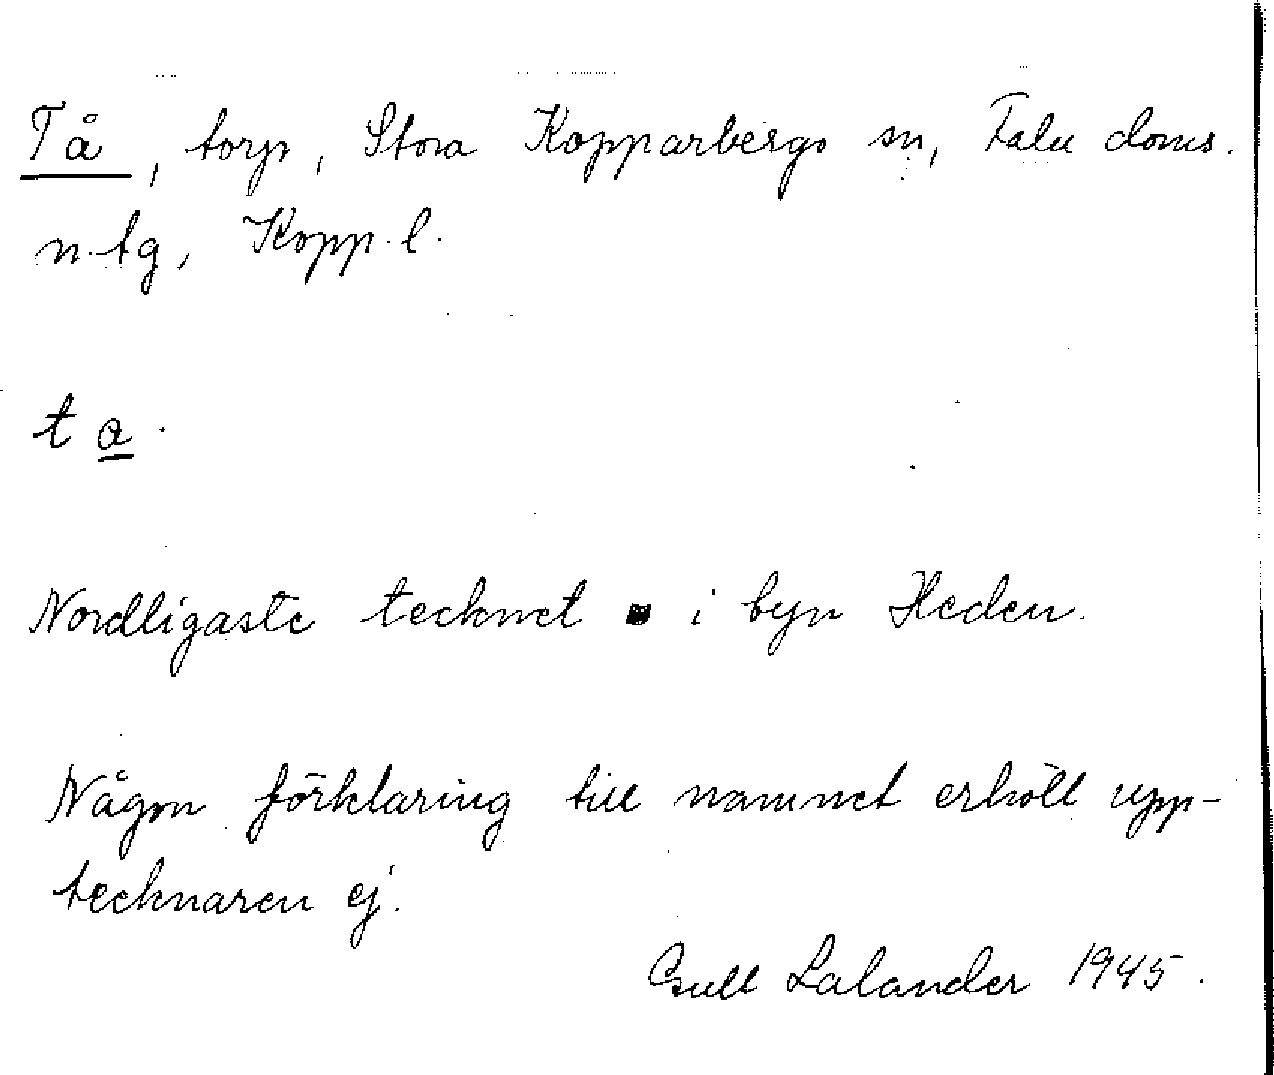 Tå, torp, Stora Kopparbergs sn, Falu doms.
n. tg, Kopp. l.
t a.
Nordligaste tecknet ▪ i byn Heden.
Någon förklaring till namnet erhöll upp-
tecknaren ej.
Gull Lalander 1945.